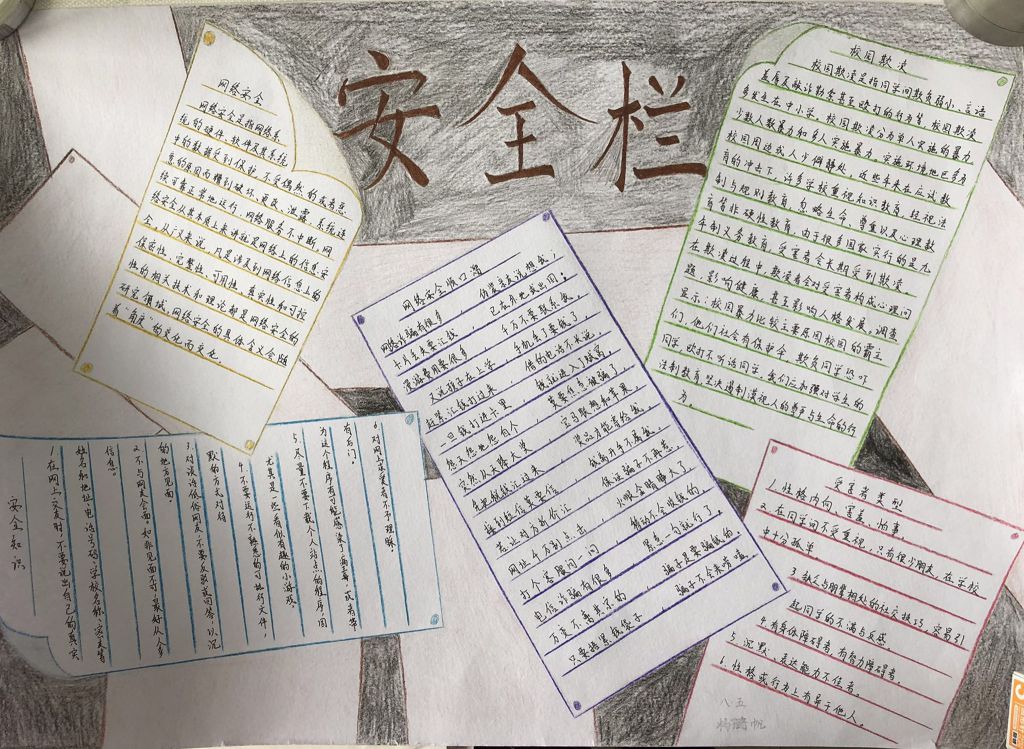 安全栏
网络安全
网络安全是指网络系
统的硬件、软件及其系统
中的数据受到保护,不受偶然的或者恶
意的原因而遭到破坏、更改、泄露、系统连
续可靠正常地运行,网络服务不中断,网
络安全从其本质上来讲就是网络上的信息安
全。从广义来说,凡是涉及到网络信息上的
保密性、完整性、可用性、真实性和可控
性的相关技术和理论都是网络安全的
研究领域,网络安全的具体含义会随
着“角度”的变化而变化
校园欺凌
校园欺凌是指同学间欺负弱小、言语
羞辱及敲诈勒索甚至殴打的行为等,校园欺凌
多发生在中小学,校园欺凌分为单人实施的暴力,
少数人暴力和多人实施暴力。实施环境地区多为
校园周边或人少僻静处,近些年来在应试教
育的冲击下,许多学校重视知识教育,轻视法
制与规则教育,忽略生命,尊重以及心理教
育等非硬性教育,由于很多国家实行的是九
年制义务教育,受害者会长期受到欺凌,
在欺凌过程中,欺凌者会对受害者构成心理问
题,影响健康,甚至影响人格发展。调查
显示:校园暴力比较主要原因校园的霸主
们,他们社会有保护伞,欺负同学恐吓
同学,殴打不听话同学,我们应加强对学生的
法制教育,坚决遏制漠视人的尊严与生命的行
为。
网络安全顺口溜
网络诈骗有很多,伪装亲友说想我;
卡片丢失要汇钱,已在外地或出国;
漫游费用要很多,千万不要联系我。
又说孩子在上学,手机丢了要钱了,
赶紧汇钱打过来,借的电话不长说。
一旦钱打进卡里,我就进入了贼窝。
怨天怨地怨自个,莫要怪意被骗了。
突然从天降大奖,宝马联想和苹果。
先把税钱汇过来,奖品才能寄给我。
接到短信莫要信,钱离开手不属我。
若让对方折价让,保证骗子不再惹。
网址千万别点击,火眼金睛睁大了,
打个客服问一问,转动不会收钱的。
电信诈骗有很多,累急一句就行了。
万变不离其宗的,骗子是要骗钱的,
只要捂紧钱袋子,骗子不会来嘚嗑。
安全知识
1.在网上交友时,不要说出自己的真实
姓名和地址、电话号码、学校名称、密友等
信息。
2.不与网友会面。如非见面不可,最好从人多
的地方见面。
3.对谈话低俗网友,不要反驳或回答,以沉
默的方式对待
4.不要运行不熟悉的可执行文件,
尤其是一些看似有趣的小游戏。
5.尽量不要下载个人站点的程序,因
为这个程序有可能感染了病毒,或者带
有后门。
6.对网上求爱者不予理睬。
受害者类型
1.性格内向、害羞、怕事。
2.在同学间不受重视,只有很少朋友,在学校
中十分孤单
3.缺乏与朋辈相处的社交技巧,容易引
起同学的不满与反感。
4.有身体障碍者,有智力障碍者。
5.沉默、表达能力不佳者。
6.性格或行为上有异于他人。
八.五